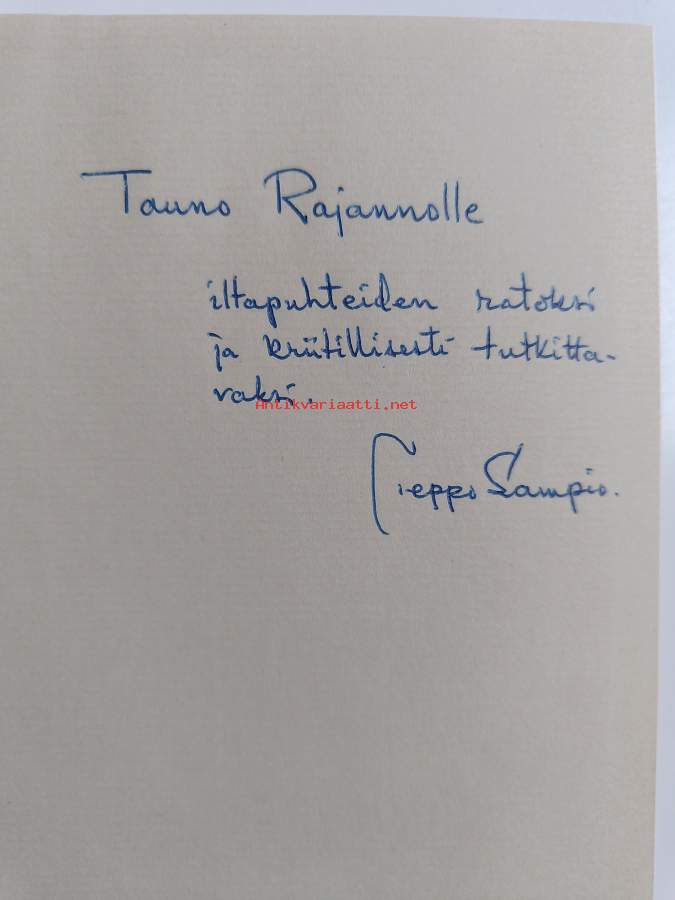 Tauno Rajannolle
iltapuhteiden ratoksi
ja kriitillisesti tutkitta-
vaksi.
Antikvariaatti.net
Seppo Sampio.